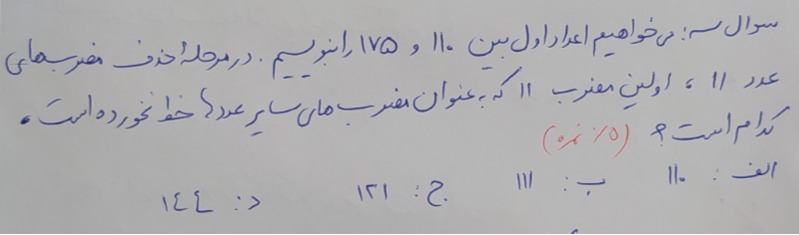 سوال سه: می‌خواهیم اعداد اول بین ۱۱۰ و ۱۷۵ را بنویسیم. در مرحلهٔ حذف مضرب‌های
عدد ۱۱، اولین مضرب ۱۱ که به عنوان مضرب‌های سایر عددها خط نخورده است،
کدام است؟ (۰/۵ نمره)
الف: ۱۱۰ ب: ۱۱۱ ج: ۱۲۱ د: ۱۴۴